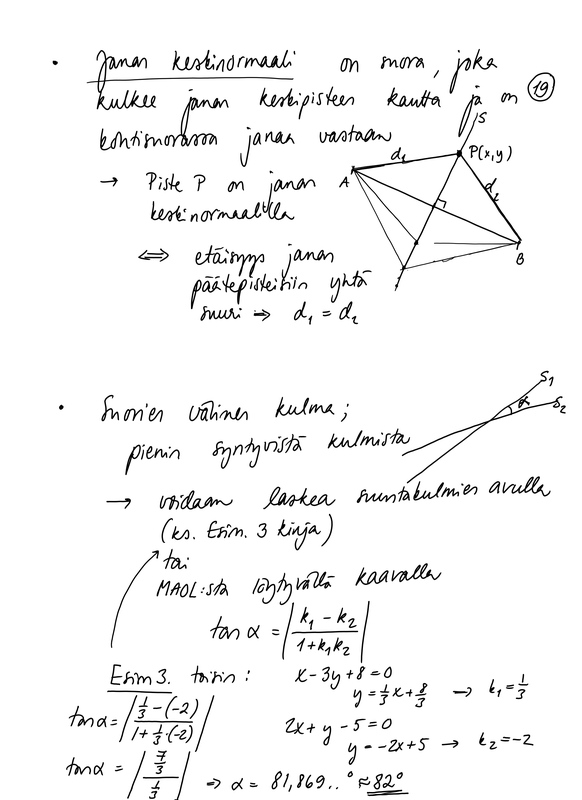 • Janan keskinormaali on suora, joka
19
kulkee janan keskipisteen kautta ja on
kohtisuorassa janaa vastaan
S
d₁
P(x,y)
→ Piste P on janan
A
d₂
keskinormaalilla
⇔ etäisyys janan
B
päätepisteisiin yhtä
suuri → d₁ = d₂
S₁
• Suorien välinen kulma;
α
S₂
pienin syntyvistä kulmista
→ voidaan laskea suuntakulmien avulla
(ks. Esim. 3 kirja)
tai
MAOL:sta löytyvällä kaavalla
tan α = |k₁ - k₂ / 1+k₁k₂|
Esim 3. toisin: x - 3y + 8 = 0
y = 1/3 x + 8/3 → k₁ = 1/3
tan α = |1/3 - (-2) / 1 + 1/3·(-2)|
2x + y - 5 = 0
y = -2x + 5 → k₂ = -2
tan α = |7/3 / 1/3| ⇒ α = 81,869..° ≈ 82°